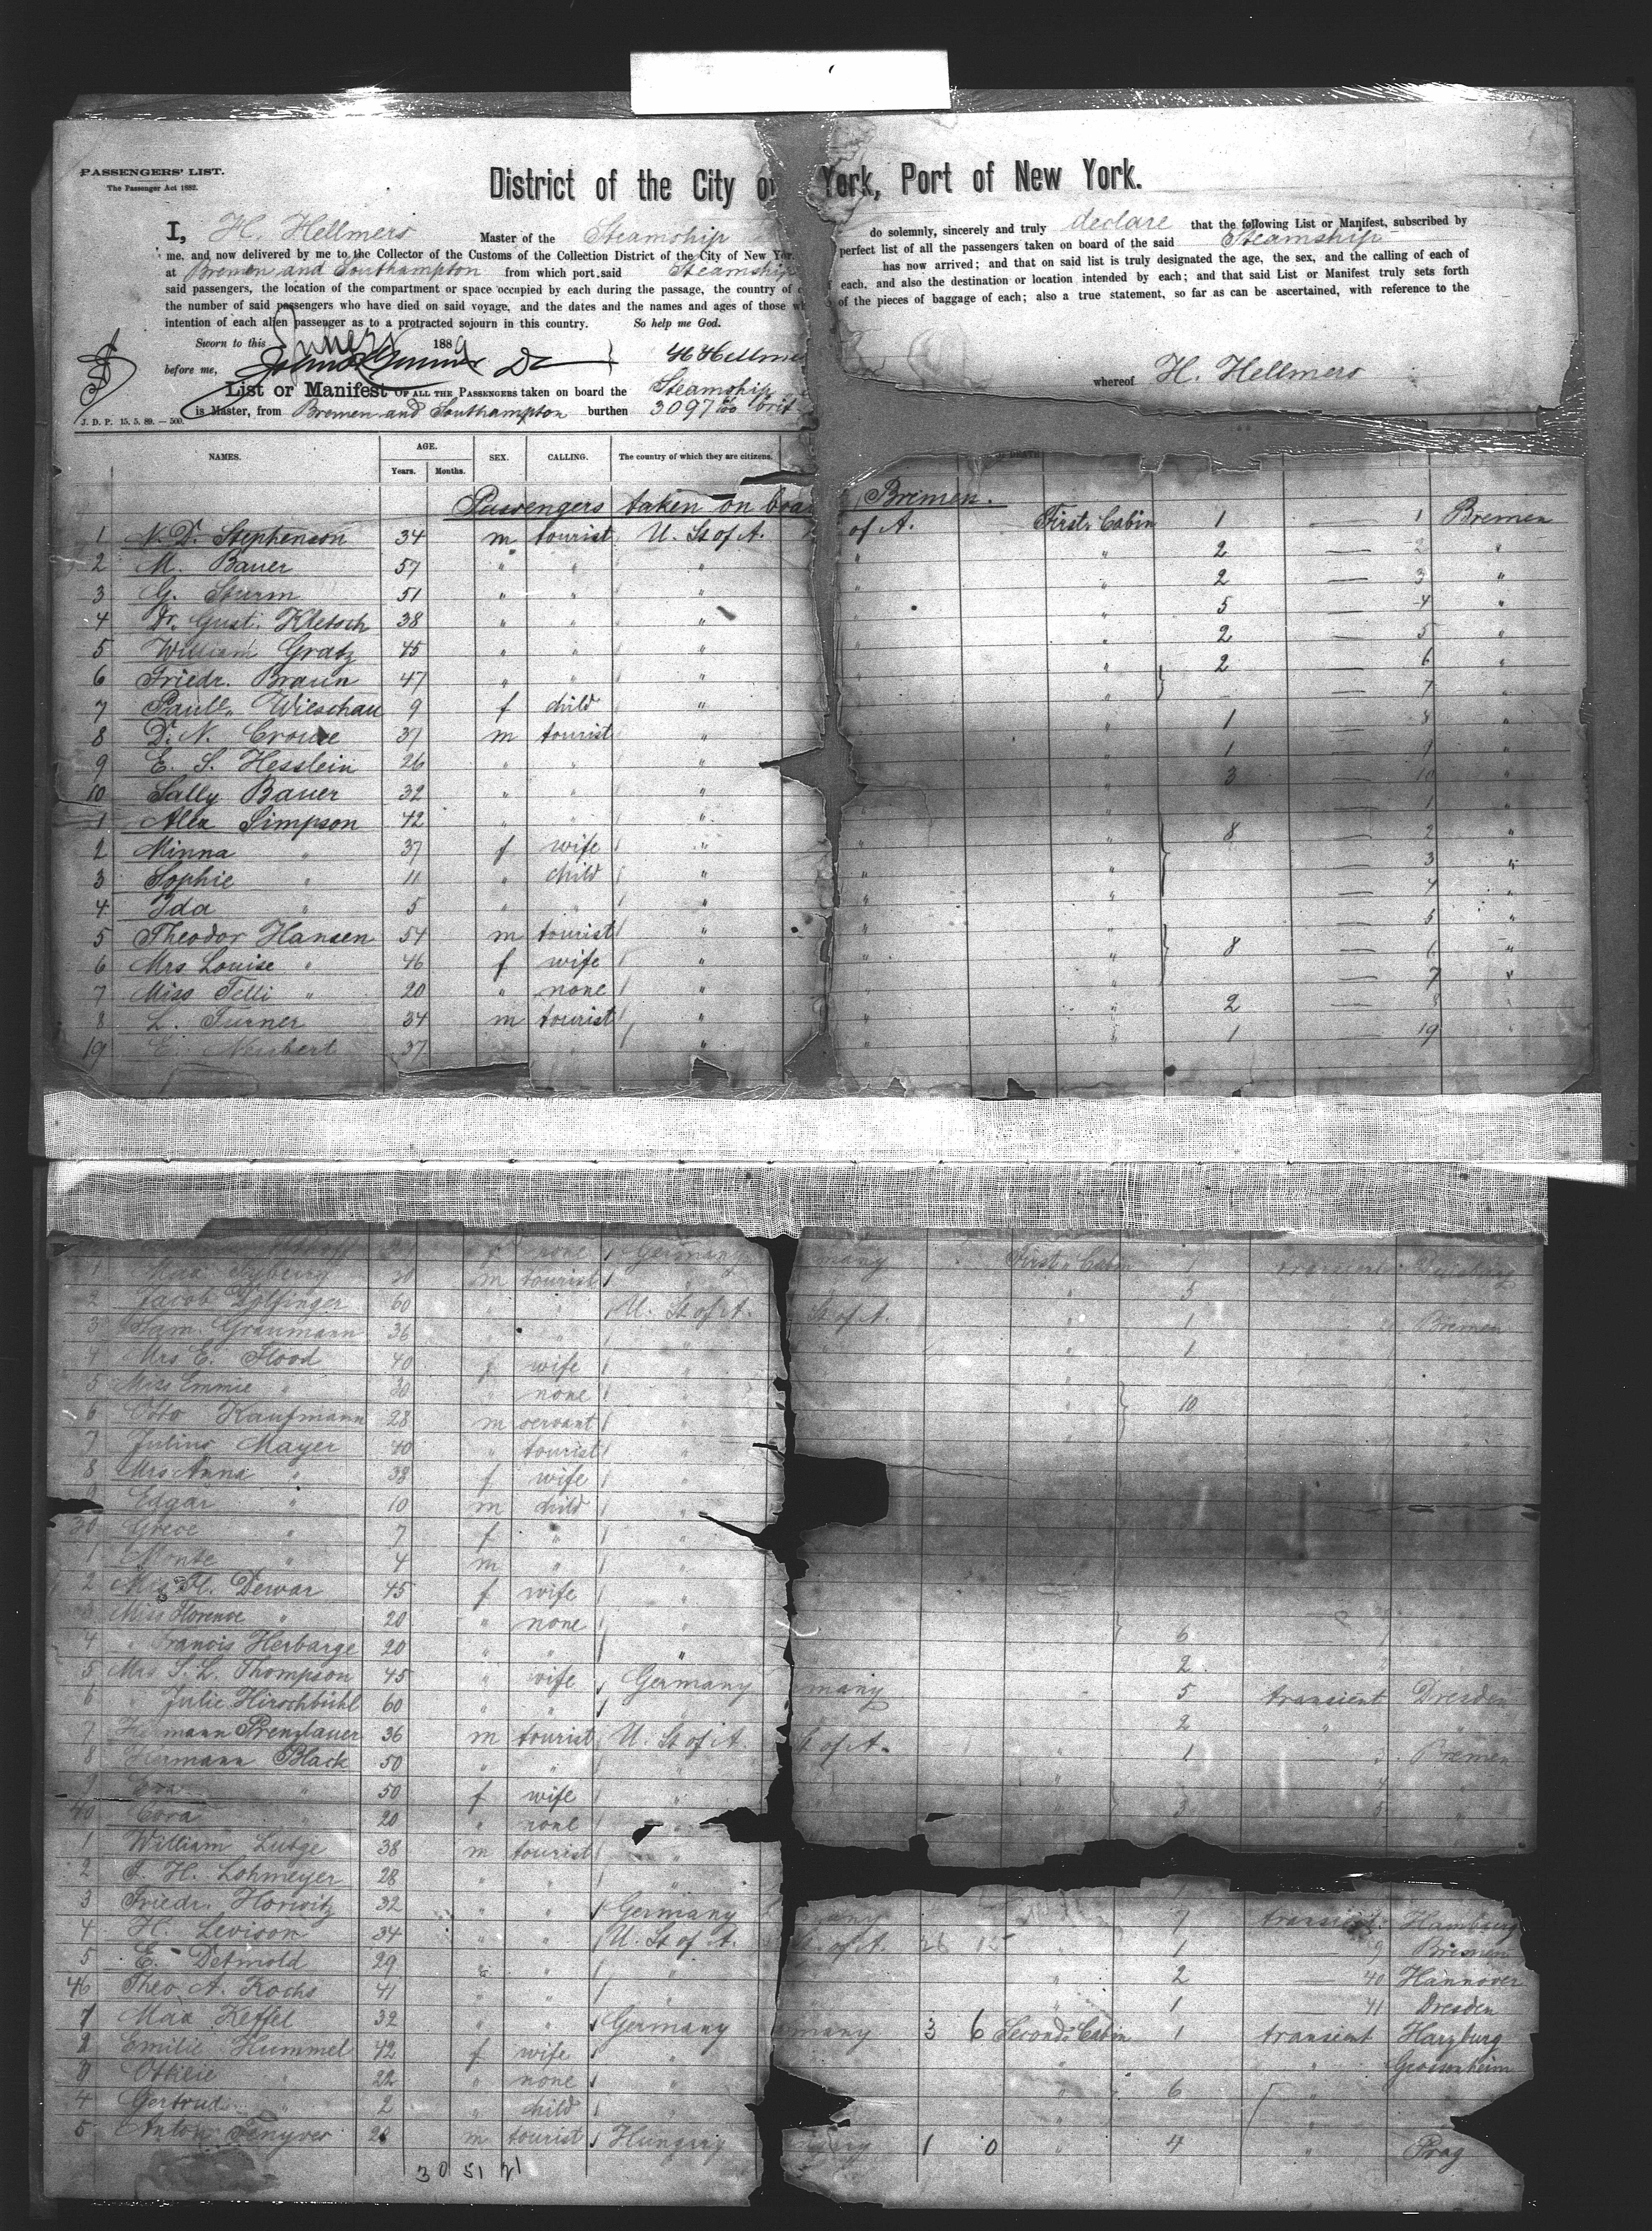 PASSENGERS' LIST.
The Passenger Act 1882.
District of the City o York, Port of New York.
I, H. Hellmers Master of the Steamship do solemnly, sincerely and truly declare that the following List or Manifest, subscribed by
me, and now delivered by me to the Collector of the Customs of the Collection District of the City of New Yor perfect list of all the passengers taken on board of the said Steamship
at Bremen and Southampton from which port said Steamship has now arrived; and that on said list is truly designated the age, the sex, and the calling of each of
said passengers, the location of the compartment or space occupied by each during the passage, the country of each, and also the destination or location intended by each; and that said List or Manifest truly sets forth
the number of said passengers who have died on said voyage, and the dates and the names and ages of those wh of the pieces of baggage of each; also a true statement, so far as can be ascertained, with reference to the
intention of each alien passenger as to a protracted sojourn in this country. So help me God.
Sworn to this 1889
before me, H Hellme
List or Manifest OF ALL THE PASSENGERS taken on board the Steamship whereof H. Hellmers
is Master, from Bremen and Southampton burthen 3097
J. D. P. 15. 5. 89. — 500.
NAMES. AGE. Years. Months. SEX. CALLING. The country of which they are citizens. DEATH
Passengers taken on boa Bremen.
1 N. D. Stephenson 34 m tourist U. St of A. of A. First Cabin 1 — 1 Bremen
2 M. Bauer 57 " " " " " 2 — 2 "
3 G. Sturm 51 " " " " " 2 — 3 "
4 Dr. Gust. Kletsch 38 " " " " 5 — 4 "
5 William Gratz 45 " " " " 2 — 5 "
6 Friedr. Braun 47 " " " " 2 — 6 "
7 Paull. Wieschau 9 f child " " — 7 "
8 D. N. Crouse 37 m tourist " " 1 — 8 "
9 E. S. Hesslein 26 " " " " 1 — 9 "
10 Sally Bauer 32 " " " " 3 — 10 "
1 Alex Simpson 42 " " " " — 1 "
2 Minna " 37 f wife " " 8 — 2 "
3 Sophie " 11 " child " " — 3 "
4 Ida " 5 " " " " — 4 "
5 Theodor Hansen 54 m tourist " " — 5 "
6 Mrs Louise " 46 f wife " " 8 — 6 "
7 Miss Telli " 20 " none " " — 7 "
8 L. Turner 34 m tourist " " 2 — 8
19 E. Neubert 37 " " " 1 — 19
f none Germany many First Cabin 1 transient
1 30 m tourist " 5
2 Jacob Dolfinger 60 " " U. St of A. St of A. " 1 Bremen
3 Sam. Graumann 36 " " " " 1
4 Mrs E. Flood 40 f wife "
5 Miss Emmie " 30 " none " 10
6 Otto Kaufmann 28 m servant "
7 Julius Mayer 40 " tourist "
8 Mrs Anna " 38 f wife "
9 Edgar " 10 m child "
30 Grece " 7 f " "
1 Monte " 4 m " "
2 Mrs H. Dewar 45 f wife "
3 Miss Florence " 20 " none "
4 " Francis Herbarge 20 " " " 6
5 Mrs S. L. Thompson 45 " wife Germany many 2
6 " Julie Hirschbühl 60 " " " 5 transient Dresden
7 Hermann Prenzlauer 36 m tourist U. St of A. St of A. 2 "
8 Hermann Black 50 " " " 1 3 Bremen
9 Eva " 50 f wife " 4
40 Cora 20 " none " 3 5
1 William Lutge 38 m tourist "
2 J. H. Lohmeyer 28 " " "
3 Friedr. Horwitz 32 " " Germany many 7 transient Hamburg
4 H. Levison 34 " " U. St of A. St. of A. 1 9 Bremen
5 E. Detmold 29 " " " " 2 — 40 Hannover
46 Theo A. Kochs 41 " " " 1 — 41 Dresden
1 Max Keffel 32 " " Germany many 3 6 Second Cabin 1 transient Harzburg
2 Emilie Hummel 42 f wife " " " Grossenheim
3 Ottilie " 22 " none " " 6 "
4 Gertrud " 2 " child " "
5 Anton Fenyves 28 m tourist Hungary gary 1 0 " 4 " Prag
30 51 21